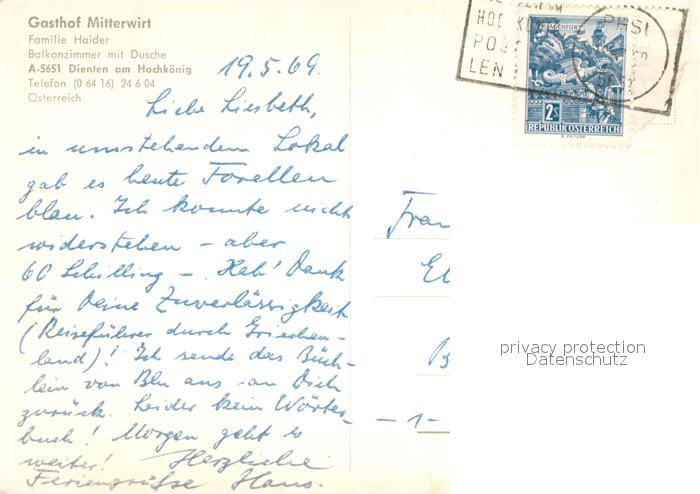 Gasthof Mitterwirt
Familie Haider
Balkonzimmer mit Dusche
A-5651 Dienten am Hochkönig
Telefon (0 64 16) 24 6 04
Österreich
19.5.69.
Liebe Liesbeth,
in umstehendem Lokal
gab es heute Forellen
blau. Ich konnte nicht
widerstehen – aber
60 Schilling –. Hab' Dank
für Deine Zuverlässigkeit
(Reiseführer durch Griechen-
land)! Ich sende das Büch-
lein von Bln aus an Dich
zurück. Leider kein Wörter-
buch! Morgen geht es
weiter! Herzliche
Feriengrüsse Hans.
PO
LEN
KLAGENFURT
2S
REPUBLIK ÖSTERREICH
Frau
El
B
- 1 -
privacy protection
Datenschutz